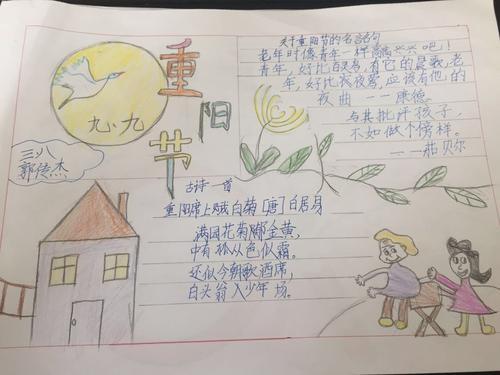 重阳节
九.九
三八
郭传杰
关于重阳节的名言名句
老年时像青年一样高高兴兴吧！
青年，好比百灵鸟，有它的晨歌，老
年，好比夜莺，应该有他，的
夜曲——康德
与其批评孩子，
不如做个榜样。
——茹贝尔
古诗一首
重阳席上赋白菊［唐］白居易
满园花菊郁金黄，
中有孤从色似霜。
还似今朝歌酒席，
白头翁入少年场。